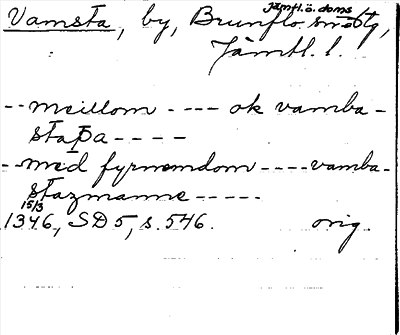 Vamsta, by, Brunflo sn,
Jämtl. ö. doms
Jämtl. l.
-- meillom ---- ok vamba-
staþa ----
-- med fyrnemdom ---- vamba-
stazmanne -----
15/3
1346, SD 5, s. 546. orig.